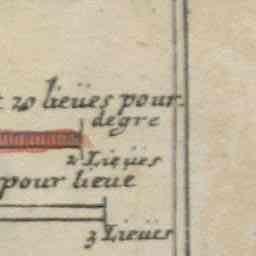 20 lieües pour
degre
2 Lieües
pour lieue
3 Lieues